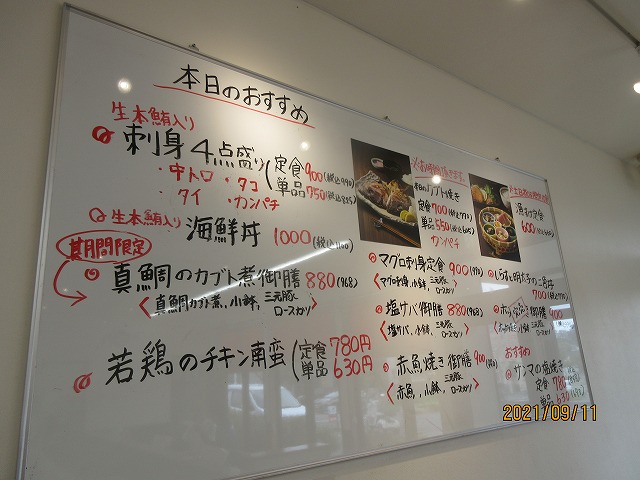 本日のおすすめ
生本鮪入り
刺身4点盛り(定食 900(税込990)
単品 750(税込825)
・中トロ ・タコ
・タイ ・カンパチ
生本鮪入り
海鮮丼 1000(税込1100)
期間限定
真鯛のカブト煮御膳 880(968)
<真鯛カブト煮、小鉢、三元豚ロースカツ>
若鶏のチキン南蛮(定食 780円
単品 630円
カブト焼き
定食 700(税込770)
単品 550(税込605)
カンパチ
マグロ刺身定食 900(990)
<マグロ刺身、小鉢、三元豚ロースカツ>
塩サバ御膳 880(968)
<塩サバ、小鉢、三元豚ロースカツ>
赤魚焼き御膳 900(990)
<赤魚、小鉢、三元豚ロースカツ>
定食
600
しらすと明太子の二色丼
700(税込770)
900
おすすめ
サンマの塩焼き
定食 780
単品 630
2021/09/11